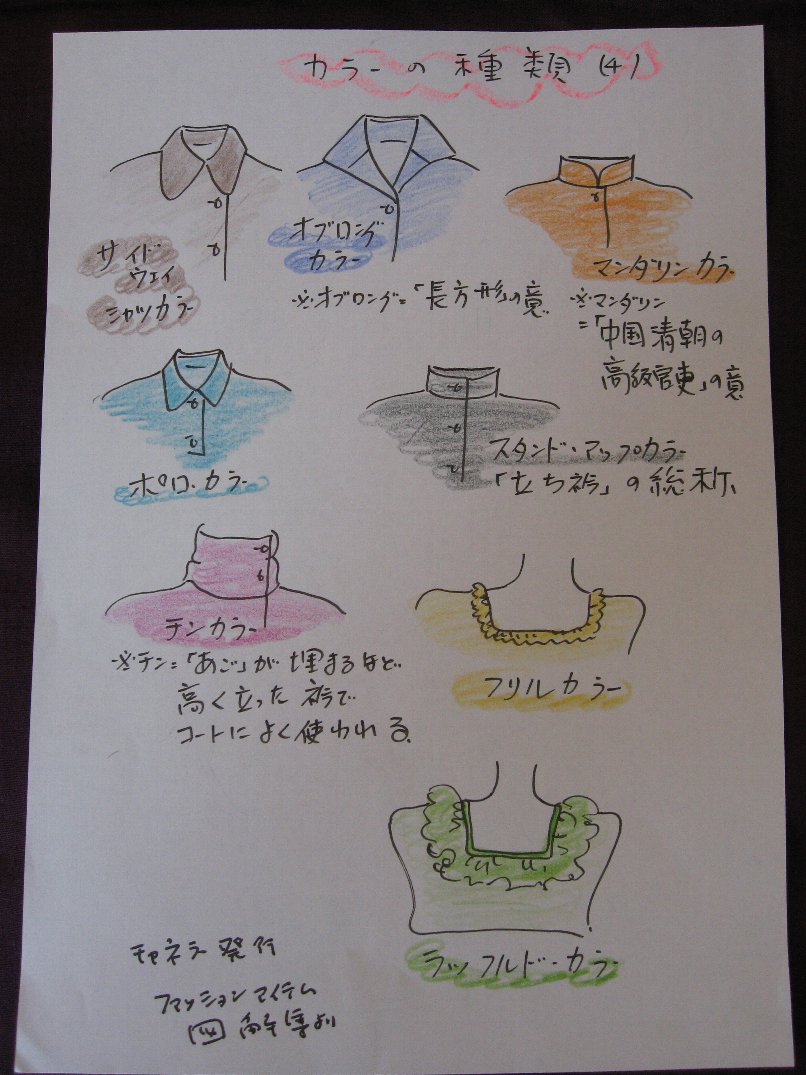 カラーの種類 (4)
サイド
ウェイ
シャツカラー
オブロング
カラー
※オブロング=「長方形」の意
マンダリンカラー
※マンダリン
=「中国清朝の
高級官吏」の意
ポロ・カラー
スタンド・アップカラー
「立ち衿」の総称
チンカラー
※チン=「あご」が埋まるほど
高く立った衿で
コートによく使われる
フリルカラー
ラッフルド・カラー
チャネラー発行
ファッションアイテム
図解集より